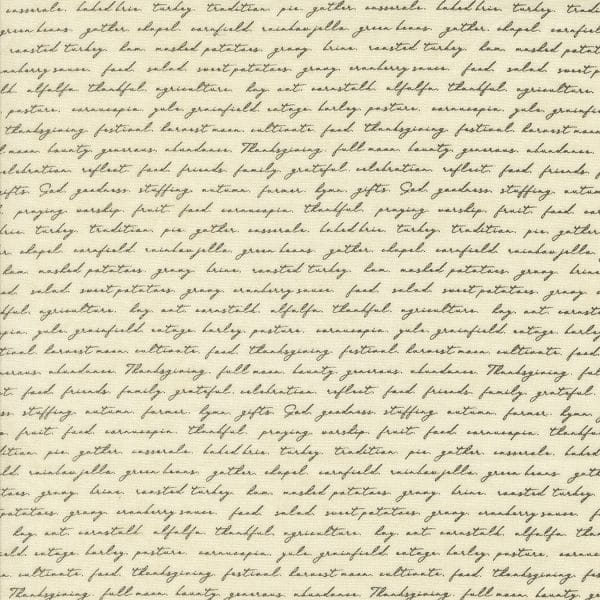 casserole. baked brie. turkey. tradition. pie. gather. casserole. baked brie. turkey. tradi
green beans. gather. chapel. cornfield. rainbow jello. green beans. gather. chapel. cornfiel
roasted turkey. ham. mashed potatoes. gravy. brine. roasted turkey. ham. mashed potat
cranberry sauce. food. salad. sweet potatoes. gravy. cranberry sauce. food. salad. sweet p
lk. alfalfa. thankful. agriculture. hay. oat. cornstalk. alfalfa. thankful. agriculture.
pasture. cornucopia. yule. grainfield. cotage. barley. pasture. cornucopia. yule. grainfie
Thanksgiving. festival. harvest moon. cultivate. food. thanksgiving. festival. harvest moon
l moon. bounty. generous. abundance. Thanksgiving. full moon. bounty. generous. abundance.
celebration. reflect. food. friends. family. grateful. celebration. reflect. food. friends. f
gifts. God. goodness. stuffing. autumn. farmer. hymn. gifts. God. goodness. stuffing. autum
praying. worship. fruit. food. cornucopia. thankful. praying. worship. fruit. food. cor
brie. turkey. tradition. pie. gather. casserole. baked brie. turkey. tradition. pie. gather
r. chapel. cornfield. rainbow jello. green beans. gather. chapel. cornfield. rainbow jello.
ham. mashed potatoes. gravy. brine. roasted turkey. ham. mashed potatoes. gravy. brine
od. salad. sweet potatoes. gravy. cranberry sauce. food. salad. sweet potatoes. gravy.
kful. agriculture. hay. oat. cornstalk. alfalfa. thankful. agriculture. hay. oat. cornst
pia. yule. grainfield. cotage. barley. pasture. cornucopia. yule. grainfield. cotage. barley
tival. harvest moon. cultivate. food. thanksgiving. festival. harvest moon. cultivate. food
erous. abundance. Thanksgiving. full moon. bounty. generous. abundance. Thanksgiving. ful
t. food. friends. family. grateful. celebration. reflect. food. friends. family. grateful.
ss. stuffing. autumn. farmer. hymn. gifts. God. goodness. stuffing. autumn. farmer. hymn.
fruit. food. cornucopia. thankful. praying. worship. fruit. food. cornucopia. thankfu
dition. pie. gather. casserole. baked brie. turkey. tradition. pie. gather. casserole. baked
ld. rainbow jello. green beans. gather. chapel. cornfield. rainbow jello. green beans. gath
toes. gravy. brine. roasted turkey. ham. mashed potatoes. gravy. brine. roasted turkey.
potatoes. gravy. cranberry sauce. food. salad. sweet potatoes. gravy. cranberry sauce. f
hay. oat. cornstalk. alfalfa. thankful. agriculture. hay. oat. cornstalk. alfalfa. than
ield. cotage. barley. pasture. cornucopia. yule. grainfield. cotage. barley. pasture. cornuco
n. cultivate. food. thanksgiving. festival. harvest moon. cultivate. food. thanksgiving. fes
Thanksgiving. full moon. bounty. generous. abundance. Thanksgiving. full moon. bounty. gen